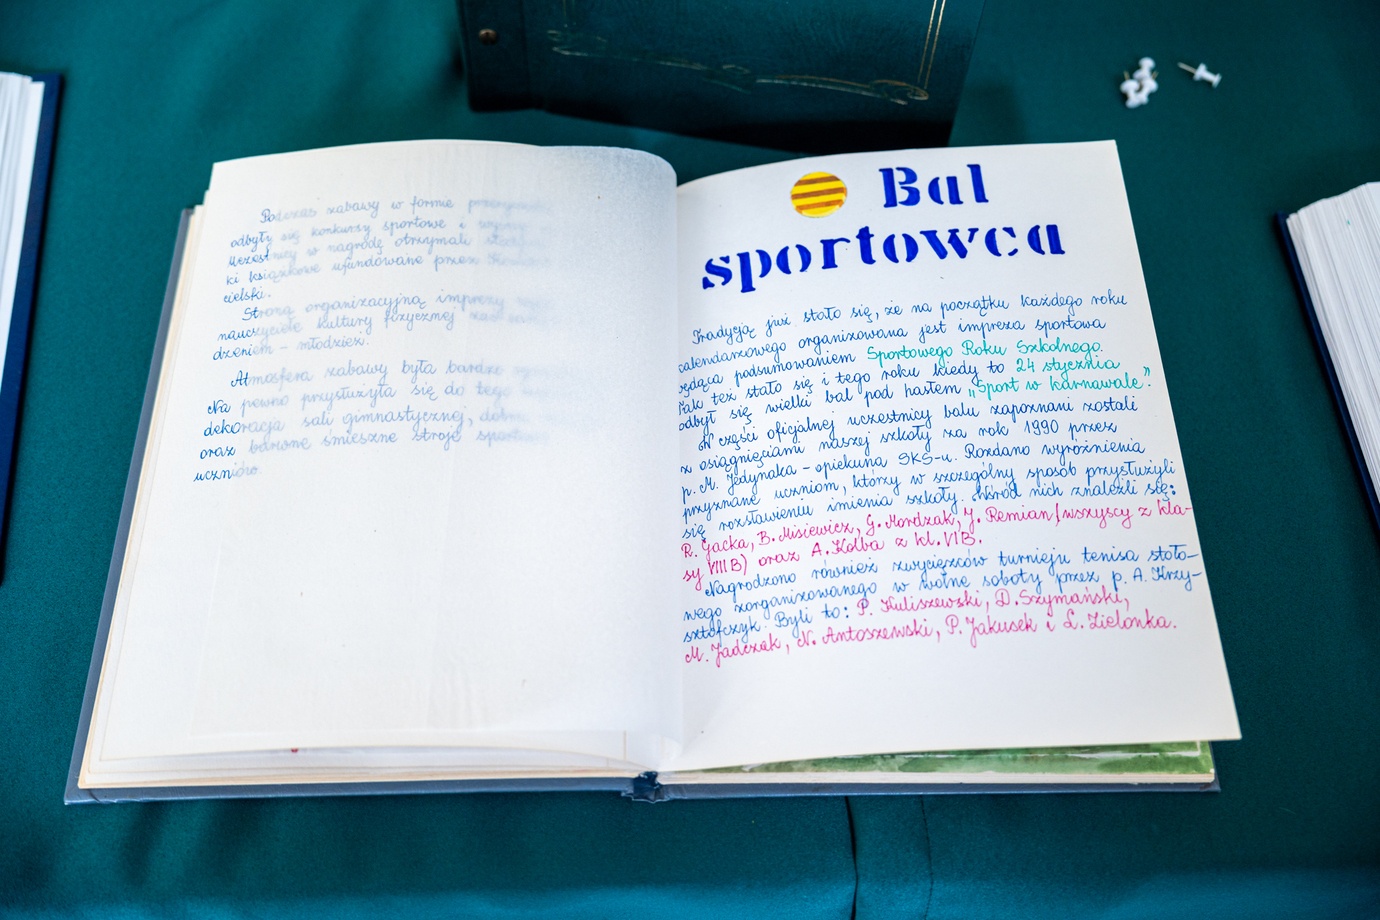 Podczas zabawy w formie
odbyły się konkursy sportowe i
Uczestnicy w nagrodę otrzymali
ki książkowe ufundowane przez
cielski.
Stroną organizacyjną imprezy
nauczyciele kultury fizycznej
dzeniem – młodzież.
Atmosfera zabawy była bardzo
Na pewno przysłużyła się do tego
dekoracja sali gimnastycznej,
oraz barwne śmieszne stroje
uczniów.
Bal
sportowca
Tradycją już stało się, że na początku każdego roku
kalendarzowego organizowana jest impreza sportowa
będąca podsumowaniem Sportowego Roku Szkolnego.
Tak też stało się i tego roku kiedy to 24 stycznia
odbył się wielki bal pod hasłem „Sport w karnawale”.
W części oficjalnej uczestnicy balu zapoznani zostali
z osiągnięciami naszej szkoły za rok 1990 przez
p. M. Jedynaka – opiekuna SKS-u. Rozdano wyróżnienia
przyznane uczniom, którzy w szczególny sposób przysłużyli
się rozsławieniu imienia szkoły. Wśród nich znaleźli się:
R. Gacka, B. Misiewicz, G. Mordzak, J. Remian (wszyscy z kla-
sy VIII B) oraz A. Kolba z kl. VI B.
Nagrodzono również zwycięzców turnieju tenisa stoło-
wego zorganizowanego w wolne soboty przez p. A. Krzy-
sztofczyk. Byli to: P. Kuliszewski, D. Szymański,
M. Jadczak, N. Antoszewski, P. Jakusek i Ł. Zielonka.